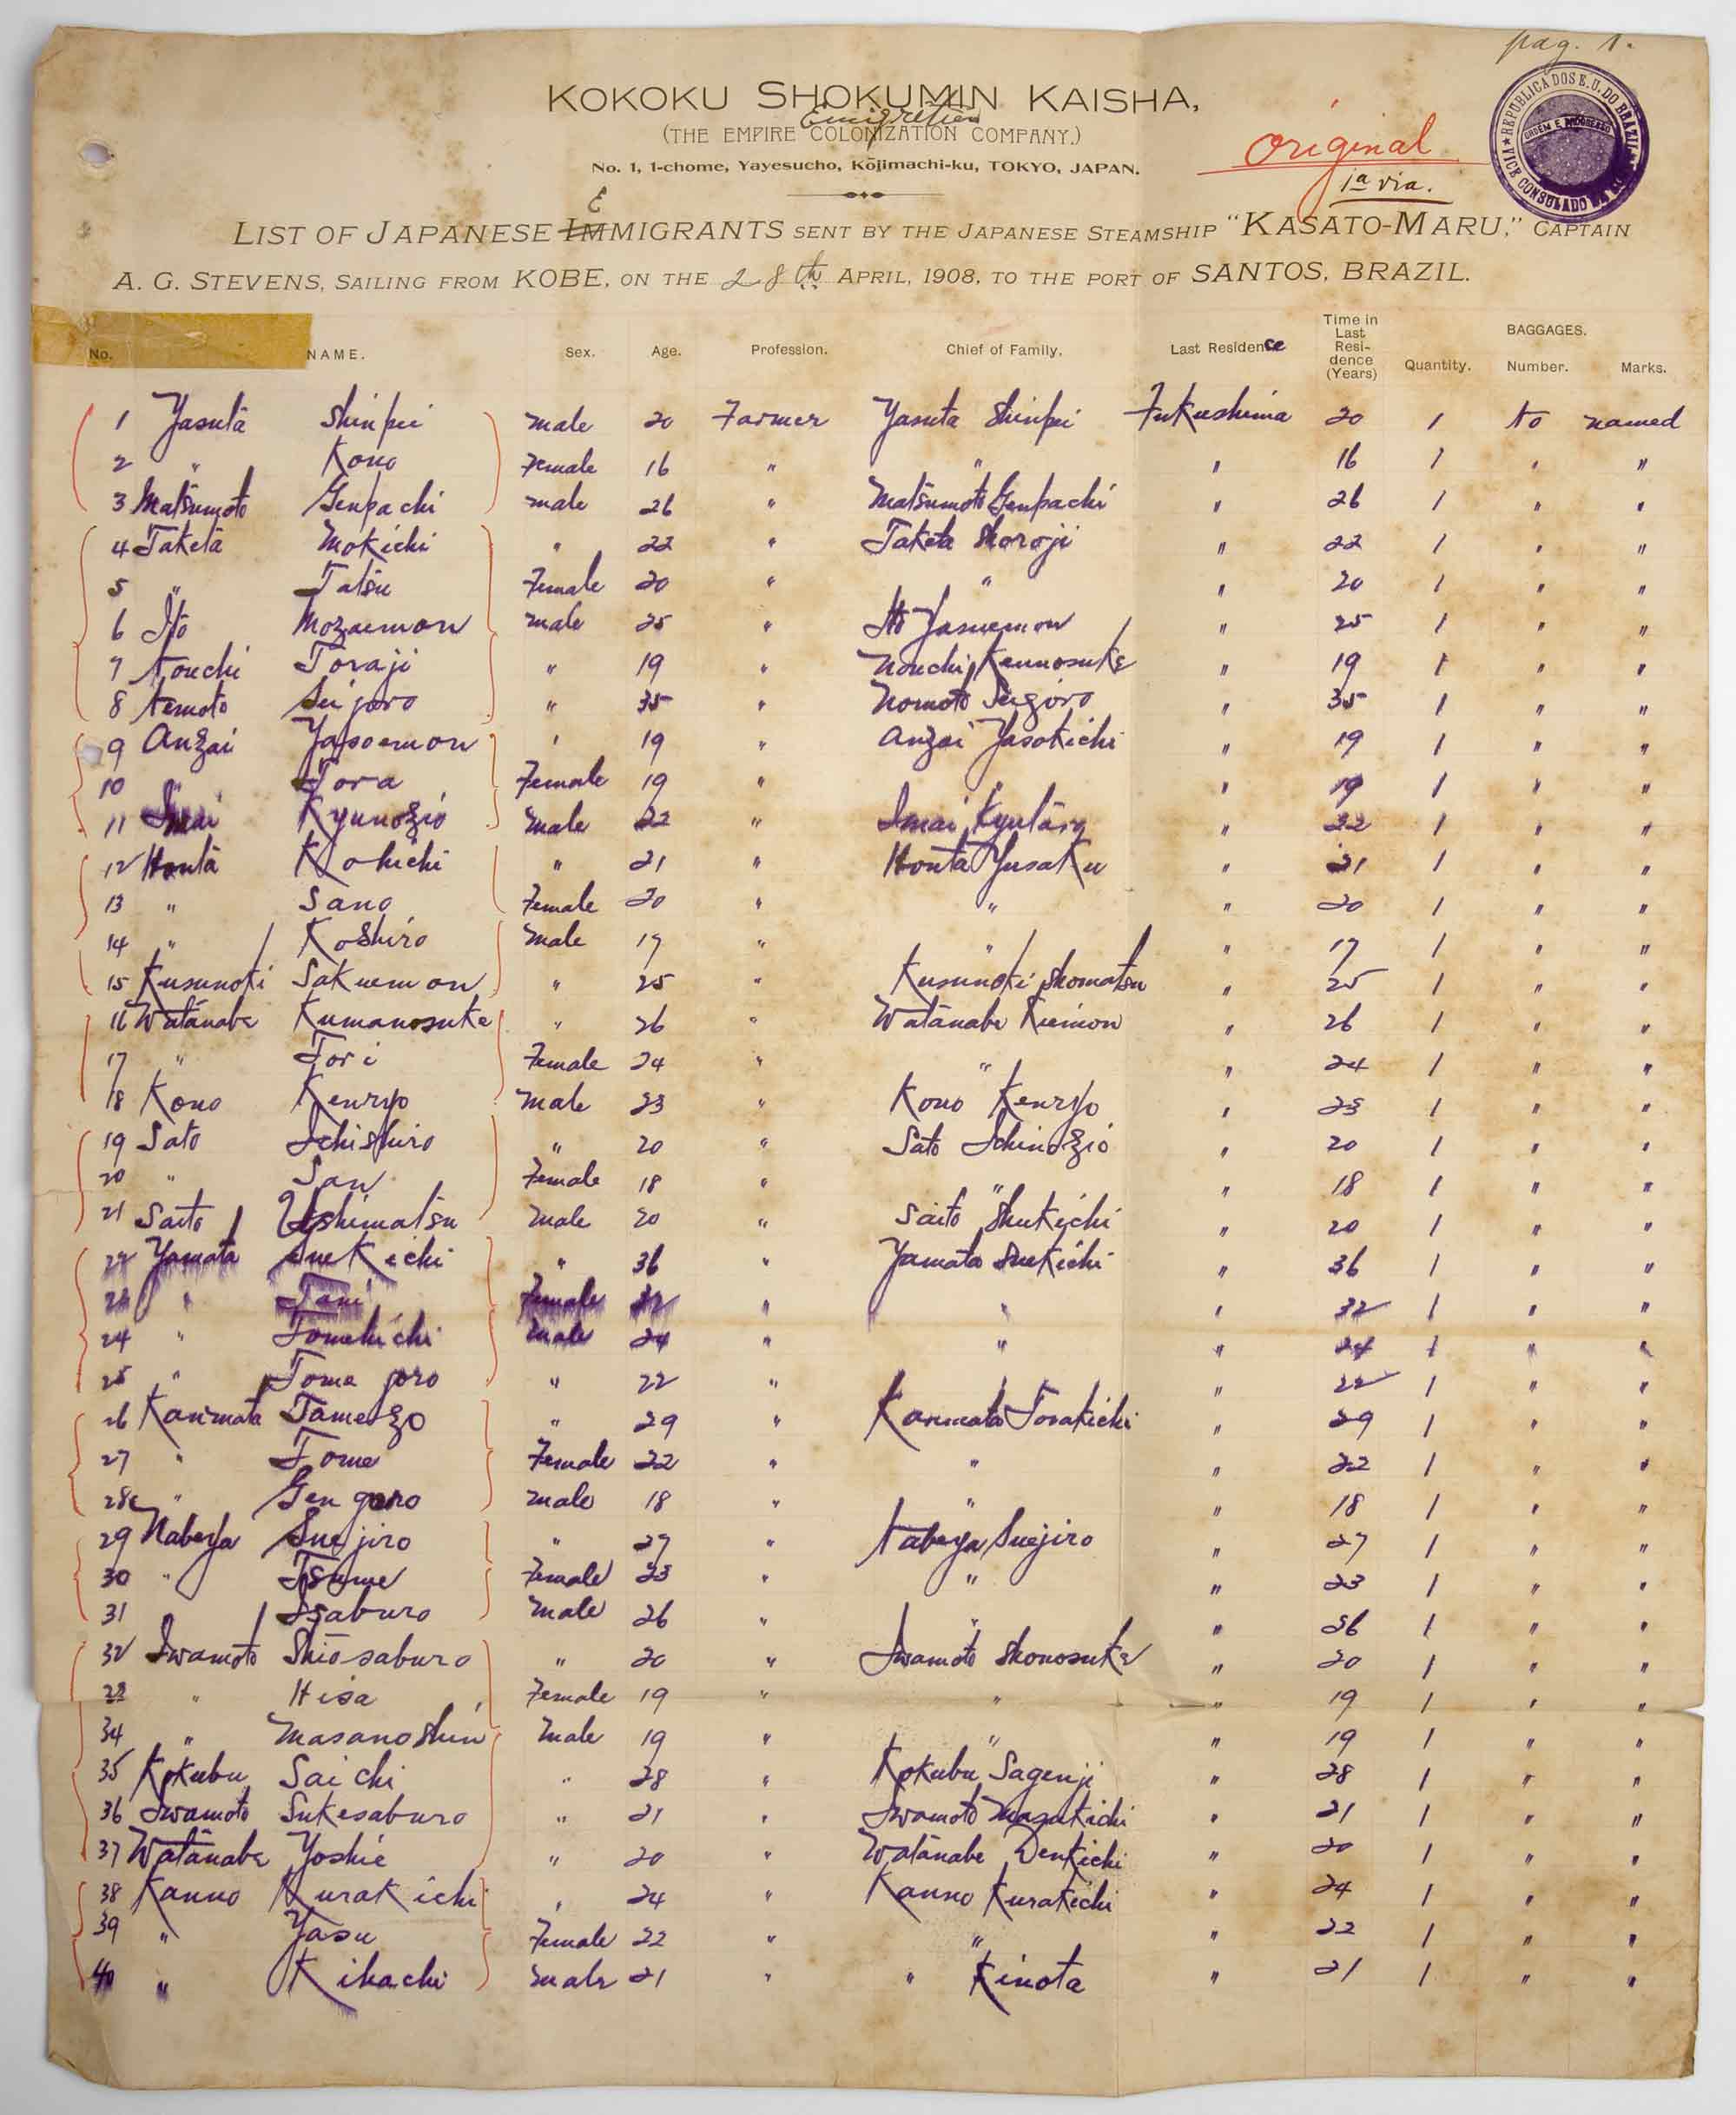 pag. 1.
KOKOKU SHOKUMIN KAISHA,
Emigration
(THE EMPIRE COLONIZATION COMPANY.)
No. 1, 1-chome, Yayesucho, Kōjimachi-ku, TOKYO, JAPAN.
original
1ª via.
REPUBLICA DOS E. U. DO BRAZIL
ORDEM E PROGRESSO
VICE CONSULADO
E
LIST OF JAPANESE IMMIGRANTS SENT BY THE JAPANESE STEAMSHIP "KASATO-MARU," CAPTAIN
A. G. STEVENS, SAILING FROM KOBE, ON THE 28th APRIL, 1908, TO THE PORT OF SANTOS, BRAZIL.
No. NAME. Sex. Age. Profession. Chief of Family. Last Residence Time in Last Residence (Years) Quantity. BAGGAGES. Number. Marks.
1 Yasuta Shinpei male 20 Farmer Yasuta Shinpei Fukushima 20 1 to named
2 " Kono Female 16 " " " 16 1 " "
3 Matsumoto Genpachi male 26 " Matsumoto Genpachi " 26 1 " "
4 Taketa Mokichi " 22 " Taketa Shoroji " 22 1 " "
5 " Tatsu Female 20 " " " 20 1 " "
6 Ito Mozaemon male 25 " Ito Yasuemon " 25 1 " "
7 Nouchi Toraji " 19 " Nouchi Kennosuke " 19 1 " "
8 Nemoto Seijoro " 35 " Nomoto Seigoro " 35 1 " "
9 Anzai Yasoemon " 19 " Anzai Yasokichi " 19 1 " "
10 " Tora Female 19 " 19 1 " "
11 Imai Kyunozio male 22 " Imai Kyutaro " 22 1 " "
12 Honta Kohichi " 21 " Honta Yusaku " 21 1 " "
13 " Sano Female 20 " " " 20 1 " "
14 " Koshiro male 17 " " " 17 1 " "
15 Kusunoki Sakuemon " 25 " Kusunoki Shomatsu " 25 1 " "
16 Watanabe Kumanosuke " 26 " Watanabe Kiemon " 26 1 " "
17 " Tori Female 24 " " " 24 1 " "
18 Kono Kenryo male 23 " Kono Kenryo " 23 1 " "
19 Sato Ichishiro " 20 " Sato Ichinozio " 20 1 " "
20 " San Female 18 " " " 18 1 " "
21 Saito Yoshimatsu male 20 " Saito Shukichi " 20 1 " "
22 Yamata Suekichi " 36 " Yamata Suekichi " 36 1 " "
23 " Tami Female 32 " " " 32 1 " "
24 " Tomekichi male 24 " " " 24 1 " "
25 " Tome joro " 22 " " 22 1 " "
26 Karimata Tamezo " 29 " Karimata Torakichi " 29 1 " "
27 " Tome Female 22 " " " 22 1 " "
28 " Gen goro male 18 " " " 18 1 " "
29 Nabeya Suejiro " 27 " Nabeya Suejiro " 27 1 " "
30 " Tsume Female 23 " " " 23 1 " "
31 Isaburo male 26 " " " 26 1 " "
32 Iwamoto Shiosaburo " 20 " Iwamoto Shonosuke " 20 1 " "
33 " Hisa Female 19 " " " 19 1 " "
34 " Masanoshin male 19 " " " 19 1 " "
35 Kokubu Saichi " 28 " Kokubu Sagenji " 28 1 " "
36 Iwamoto Sukesaburo " 21 " Iwamoto Masukichi " 21 1 " "
37 Watanabe Yoshie " 20 " Watanabe Denkichi " 20 1 " "
38 Kanno Kurakichi " 24 " Kanno Kurakichi " 24 1 " "
39 " Yasu Female 22 " " " 22 1 " "
40 " Kihachi male 21 " " Kinota " 21 1 " "